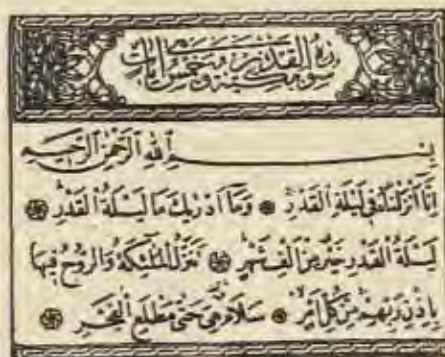 سورة القدر مكية وهي خمس آيات
بسم الله الرحمن الرحيم
إنا أنزلناه في ليلة القدر ۝ وما أدريك ما ليلة القدر ۝
ليلة القدر خير من ألف شهر ۝ تنزل الملئكة والروح فيها
بإذن ربهم من كل أمر ۝ سلام هي حتى مطلع الفجر ۝